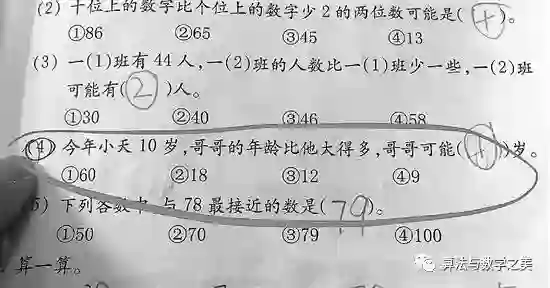 (2) 十位上的数字比个位上的数字少2的两位数可能是( 4 )。
①86 ②65 ③45 ④13
(3) 一(1)班有44人,一(2)班的人数比一(1)班少一些,一(2)班
可能有( 2 )人。
①30 ②40 ③46 ④58
(4) 今年小天10岁,哥哥的年龄比他大得多,哥哥可能( 4 )岁。
①60 ②18 ③12 ④9
5) 下列各数中,与78最接近的数是( 79 )。
①50 ②70 ③79 ④100
算一算。
算法与数学之美